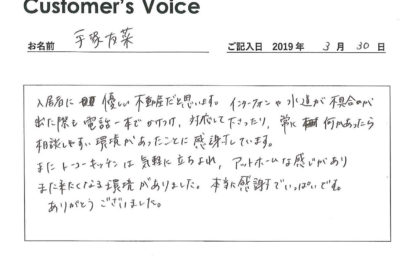 Customer's Voice
お名前 手塚友菜 ご記入日 2019年 3月 30日
入居者に優しい不動産だと思います。インターフォンや水道が不具合が
出た際も電話一本でかけつけ、対応して下さったり、常に何かあったら
相談しやすい環境があったことに感謝しています。
またトーコーキッチンは気軽に立ちよれ、アットホームな感じがあり
また来たくなる環境がありました。本当に感謝でいっぱいです。
ありがとうございました。